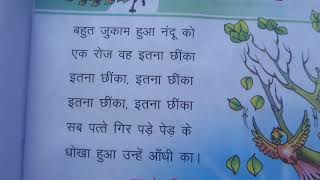 बहुत जुकाम हुआ नंदू को
एक रोज वह इतना छींका
इतना छींका, इतना छींका
इतना छींका, इतना छींका
सब पत्ते गिर पड़े पेड़ के
धोखा हुआ उन्हें आँधी का।